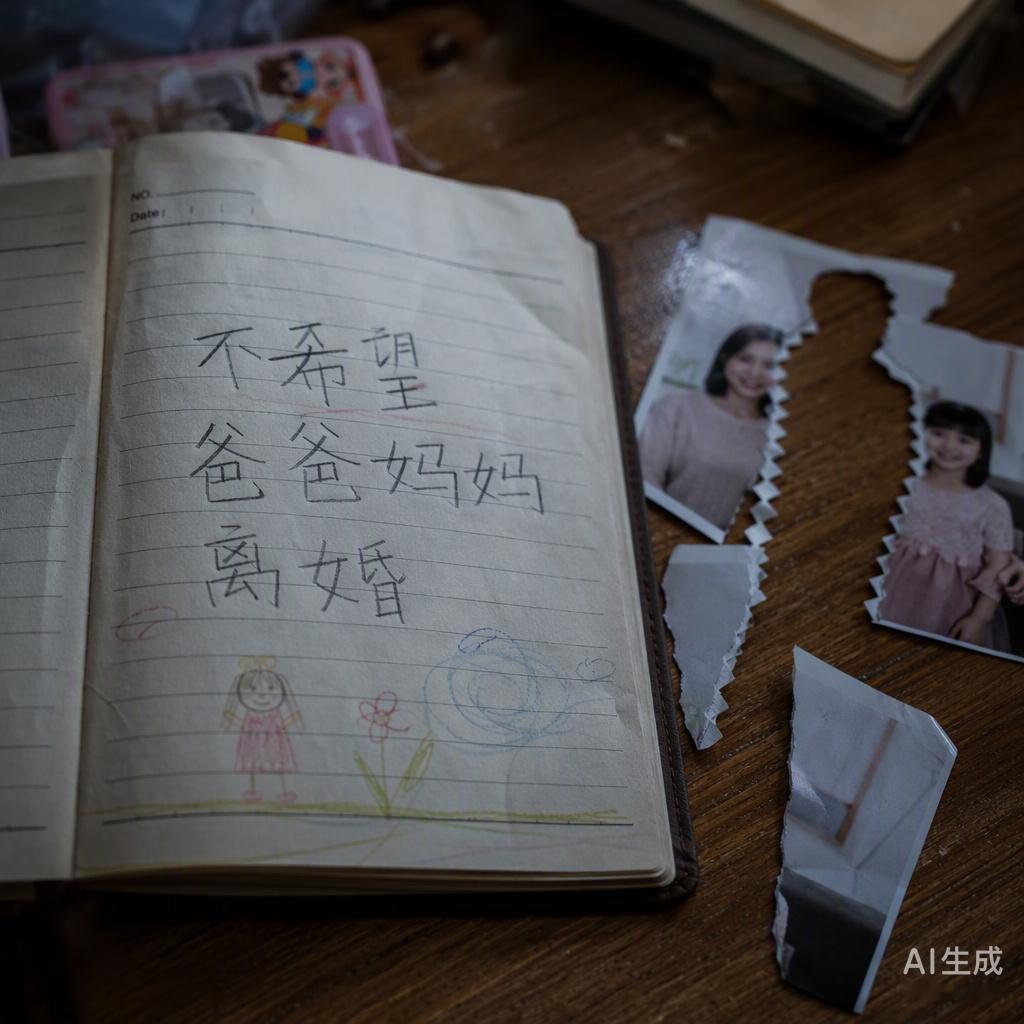 NO.
Date:
不希望
爸爸妈妈
离婚
AI生成